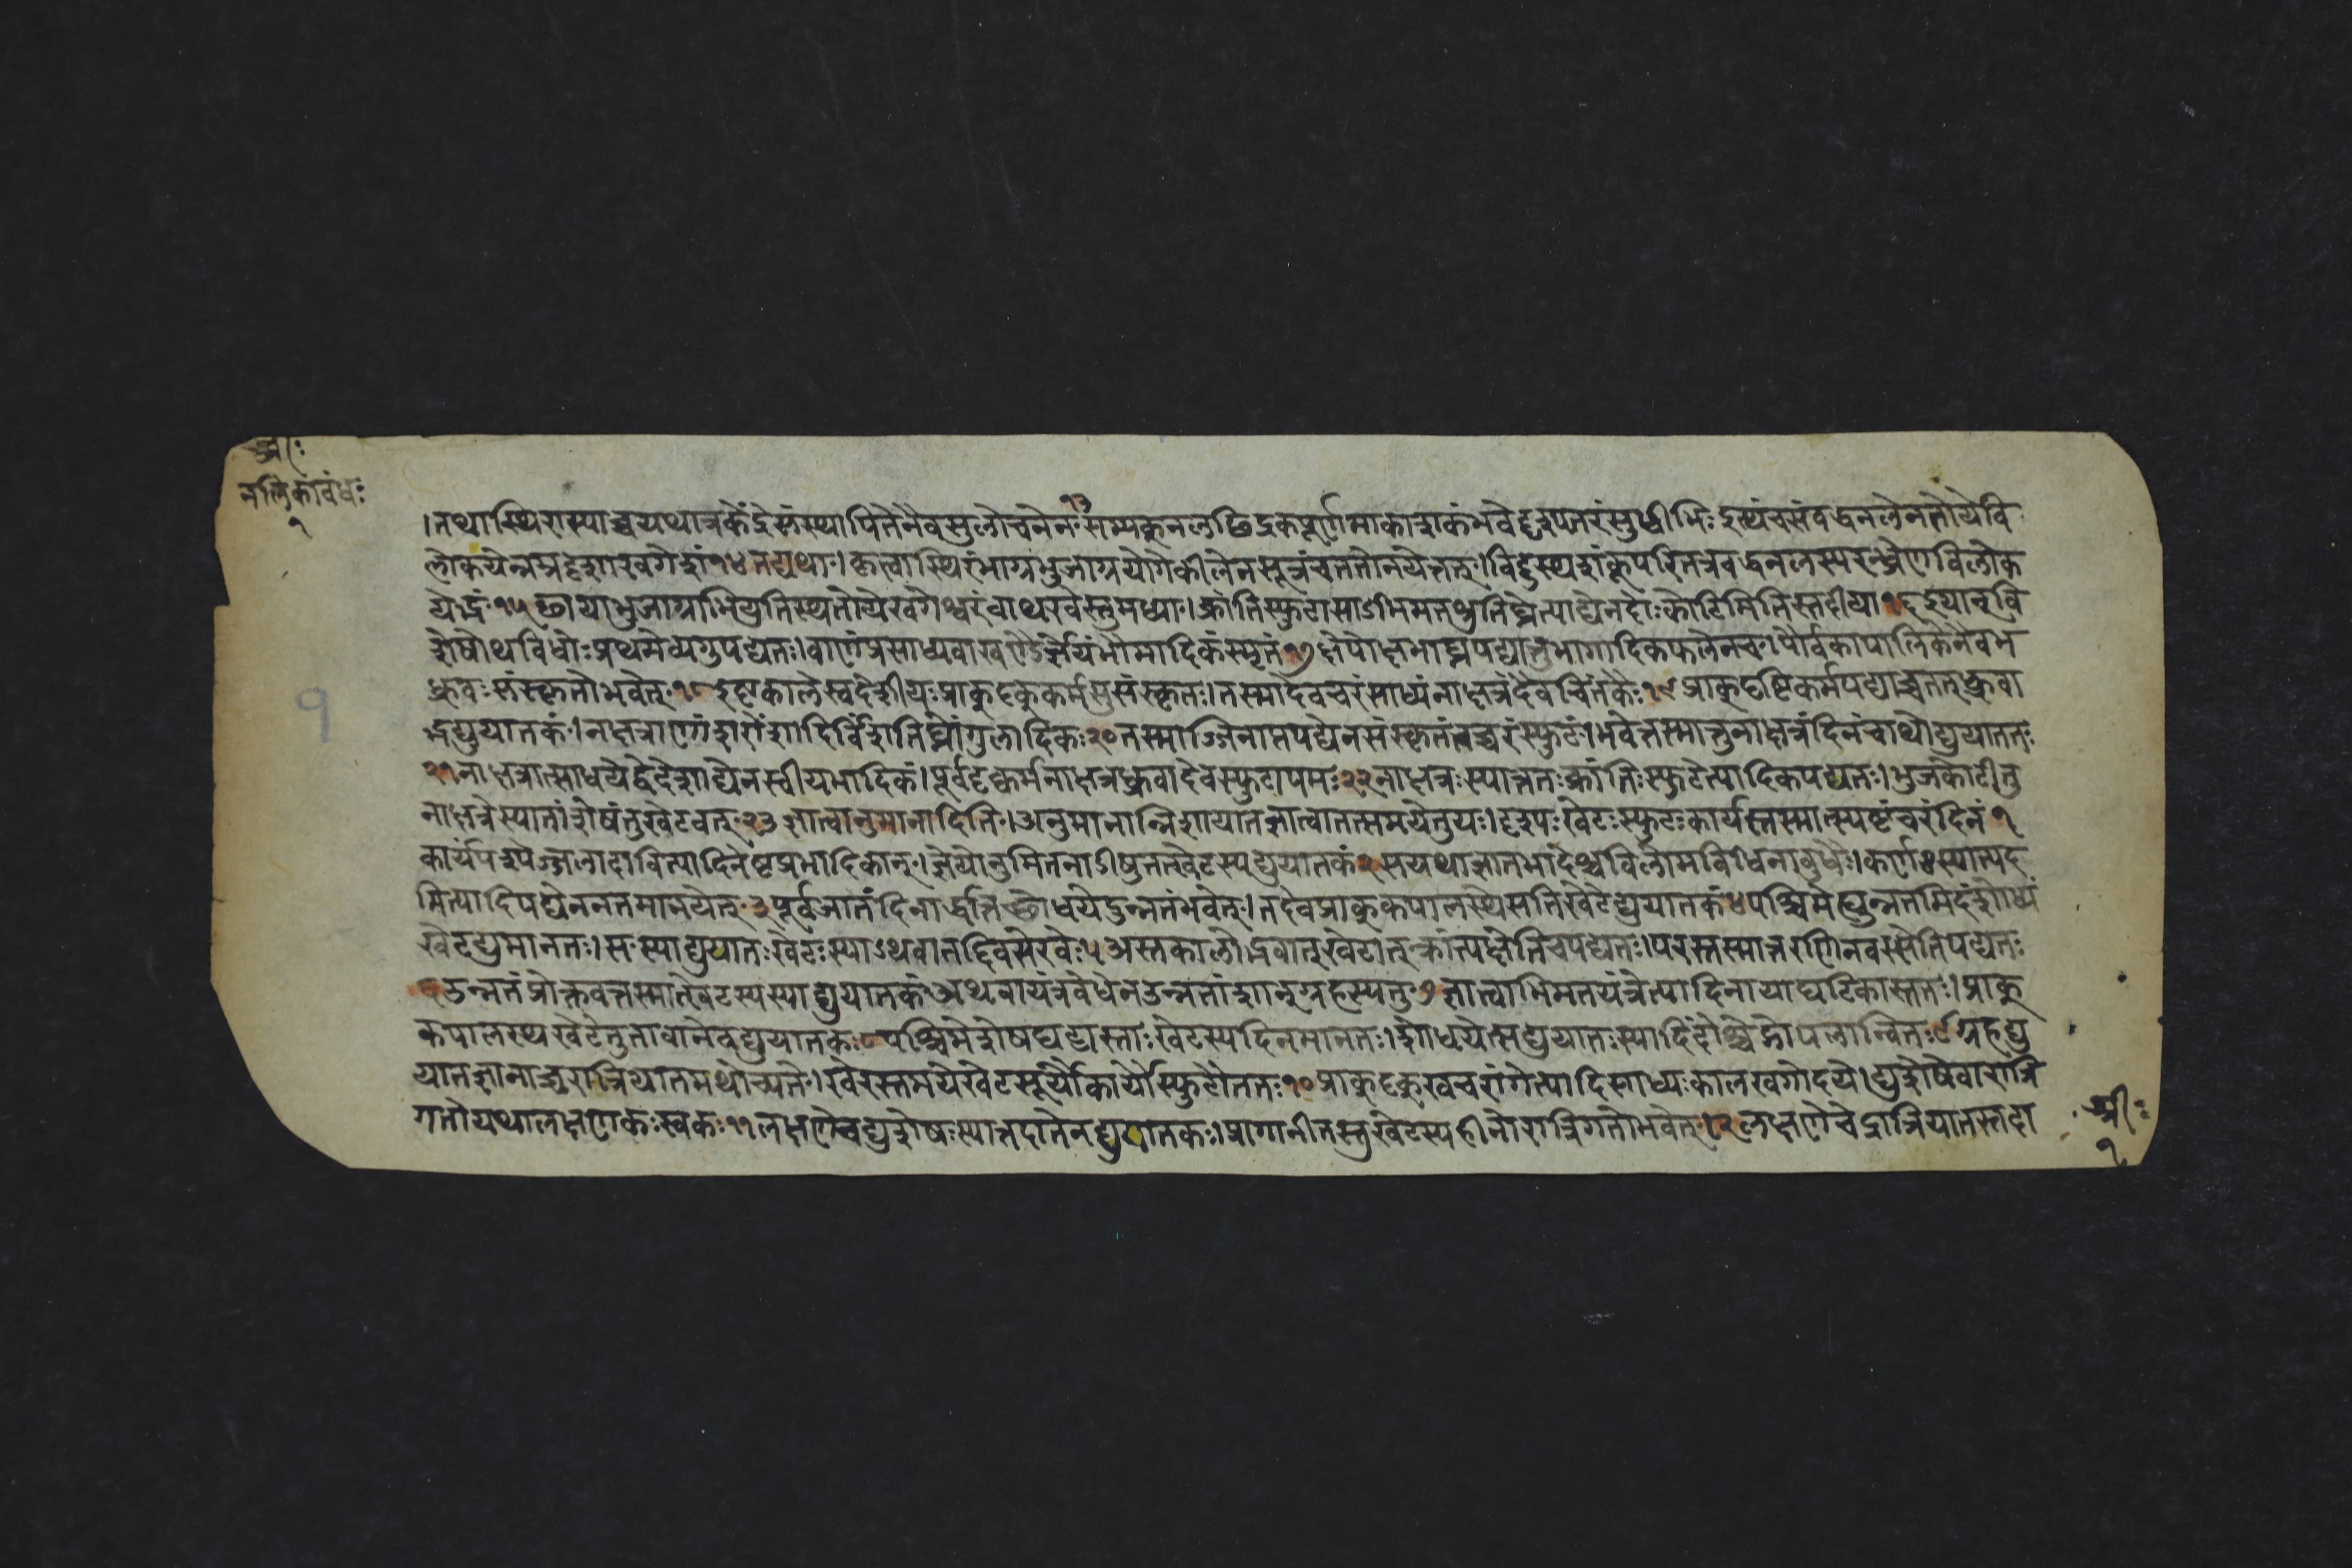 श्रीः
नलिकाबंधः
१
।तथास्थिरास्याच्चयथात्रकेंद्रेसंस्थापितेनैवसुलोचनेन१३सम्यक्नलछिद्रकपूर्णमाकाशकंभवेद्दृश्यतरंसुधीभिःइत्थंचसंबद्धनलेनतोयेवि
लोकयेन्नप्रदृशाखगेशं१४तद्यथा।कृत्वास्थितंभाग्रभुजाग्रयोगेकीलेनसूत्रंचततोनयेत्तत्।बिंदुस्थशंकूपरितत्रबद्धनलस्यरन्ध्रेणविलोक
येद्भं१५छायाभुजाग्राभियुतिस्थतोयेखगेश्वरंवाथरवेस्तुमध्या।क्रांतिस्फुटासाऽभिमतथुतिघ्नेत्याद्येनदोःकोटिमितिस्तदीया१६इयान्वि
शेषोथविधोःप्रथमेव्यगुपद्यतः।बाणंप्रसाध्यवाखणैर्ज्ञेयंभौमादिकंस्मृतं१७क्षेपोक्षभाघ्नपद्यात्तुभागादिकफलेनच।पौर्वकापालिकेनैवभ
ध्रुवःसंस्कृतोभवेत्१८इष्टकालेस्वदेशीयःप्राक्दृक्कर्मसुसंस्कृतः।तस्मादेवचरंसाध्यंनाक्षत्रंदैवचिंतकैः१९प्राक्दृष्टिकर्मपद्याच्चतत्ध्रुवा
द्भद्युयातकं।नक्षत्राणांशरोंशादिर्विंशतिघ्नोंगुलादिकः२०तस्माज्जिनाप्तपद्येनसंस्कृतंतच्चरंस्फुटं।भवेत्तस्मात्तुनाक्षत्रंदिनंचाथोद्युयाततः
२१नाक्षत्रात्साधयेद्वेदेशाद्येनस्वीयभादिकं।पूर्वदृक्कर्मनाक्षत्रध्रुवादेवस्फुटापमः२२नाक्षत्रःस्यात्ततःक्रांतिःस्फुटेत्यादिकपद्यतः।भुजकोटीतु
नाक्षत्रेस्यातांशेषंतुखेटवत्२३ज्ञात्वानुमानादिति।अनुमानान्निशायातंज्ञात्वातत्समयेतुयः।दृश्यःखेटःस्फुटःकार्यस्तस्मात्स्पष्टंचरंदिनं१
कार्यंपश्यज्जलादावित्यादिनेष्टप्रभादिकान्।ज्ञेयोनुमितनाडीषुतत्खेटस्यद्युयातकं२सयथाज्ञातभादेश्चविलोमविधिनाबुधैः।कर्णःस्यात्पद
मित्यादिपद्येननतमानयेत्३पूर्वजातंदिनार्द्धात्तिच्छोधयेदुन्नतंभवेत्।तदेवप्राक्कपालस्थेसतिखेटेद्युयातकं४पश्चिमेत्युन्नतमिदंशोध्यं
खेटद्युमानतः।सःस्याद्द्युयातःखेटःस्याऽथवातद्दिवसेरवेः५अस्तकालोद्भवात्खेटात्क्रांत्यक्षेतिचपद्यतः।परस्तस्मात्तरणिनवस्तेतिपद्यतः
६उन्नतंप्रोक्तवत्तस्मात्खेटस्यस्याद्द्युयातकंअथवायंत्रवेधेनउन्नतांशान्ग्रहस्यतु७ज्ञात्वाभिमतयंत्रेत्यादिनायाघटिकास्ततः।प्राक्
कपालस्थखेटेतुतावानेवद्युयातकः८पश्चिमेशेषघट्यस्ताःखेटस्यदिनमानतः।शोधयेत्सद्युयातःस्यादिंदोश्चेद्गोपलान्वितः९ग्रहद्यु
यातज्ञानाच्चरात्रियातमथोच्यते।रवेरस्तमयेखेटसूर्यौकार्यौस्फुटौततः१०प्राक्दृक्खचरांगेत्यादिसाध्यःकालखगोदये।द्युशेषोवारात्रि
गतोयथालक्षणकःस्वकः११लक्षणेचद्युशेषःस्यात्तदातेनद्युयातकः।प्रागानीतस्तुखेटस्यहीनोरात्रिगतोभवेत्१२लक्षणेचेद्रात्रियातस्तदा
श्रीः
१
9